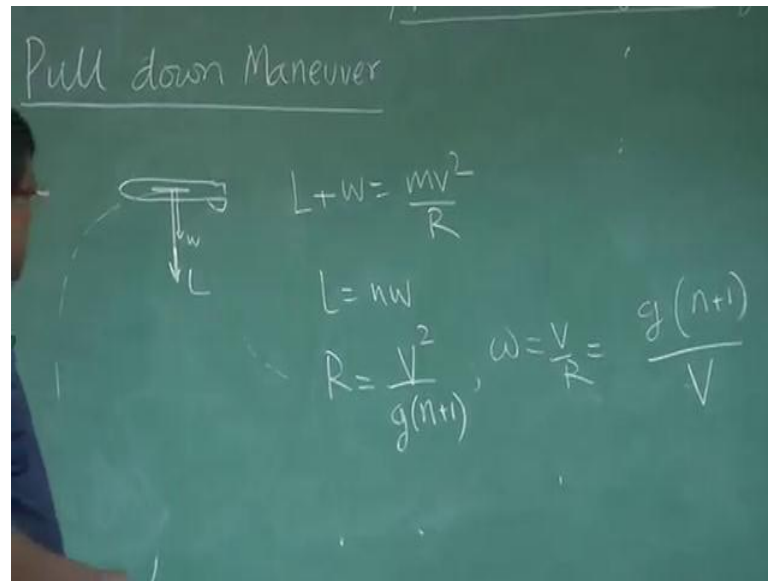 Pull down Maneuver
L+W = mv²/R
w
L
L = nw
R = V²/g(n+1), ω = V/R = g(n+1)/V